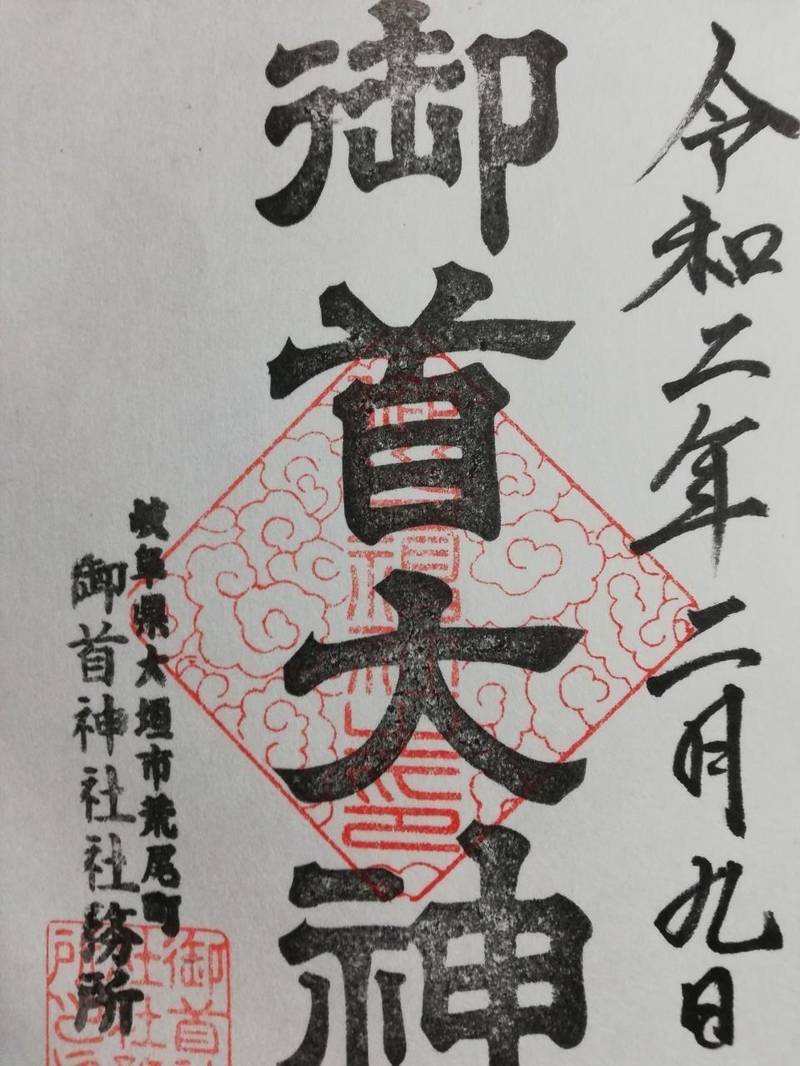 令和二年二月九日
御首大神
岐阜県大垣市荒尾町
御首神社社務所